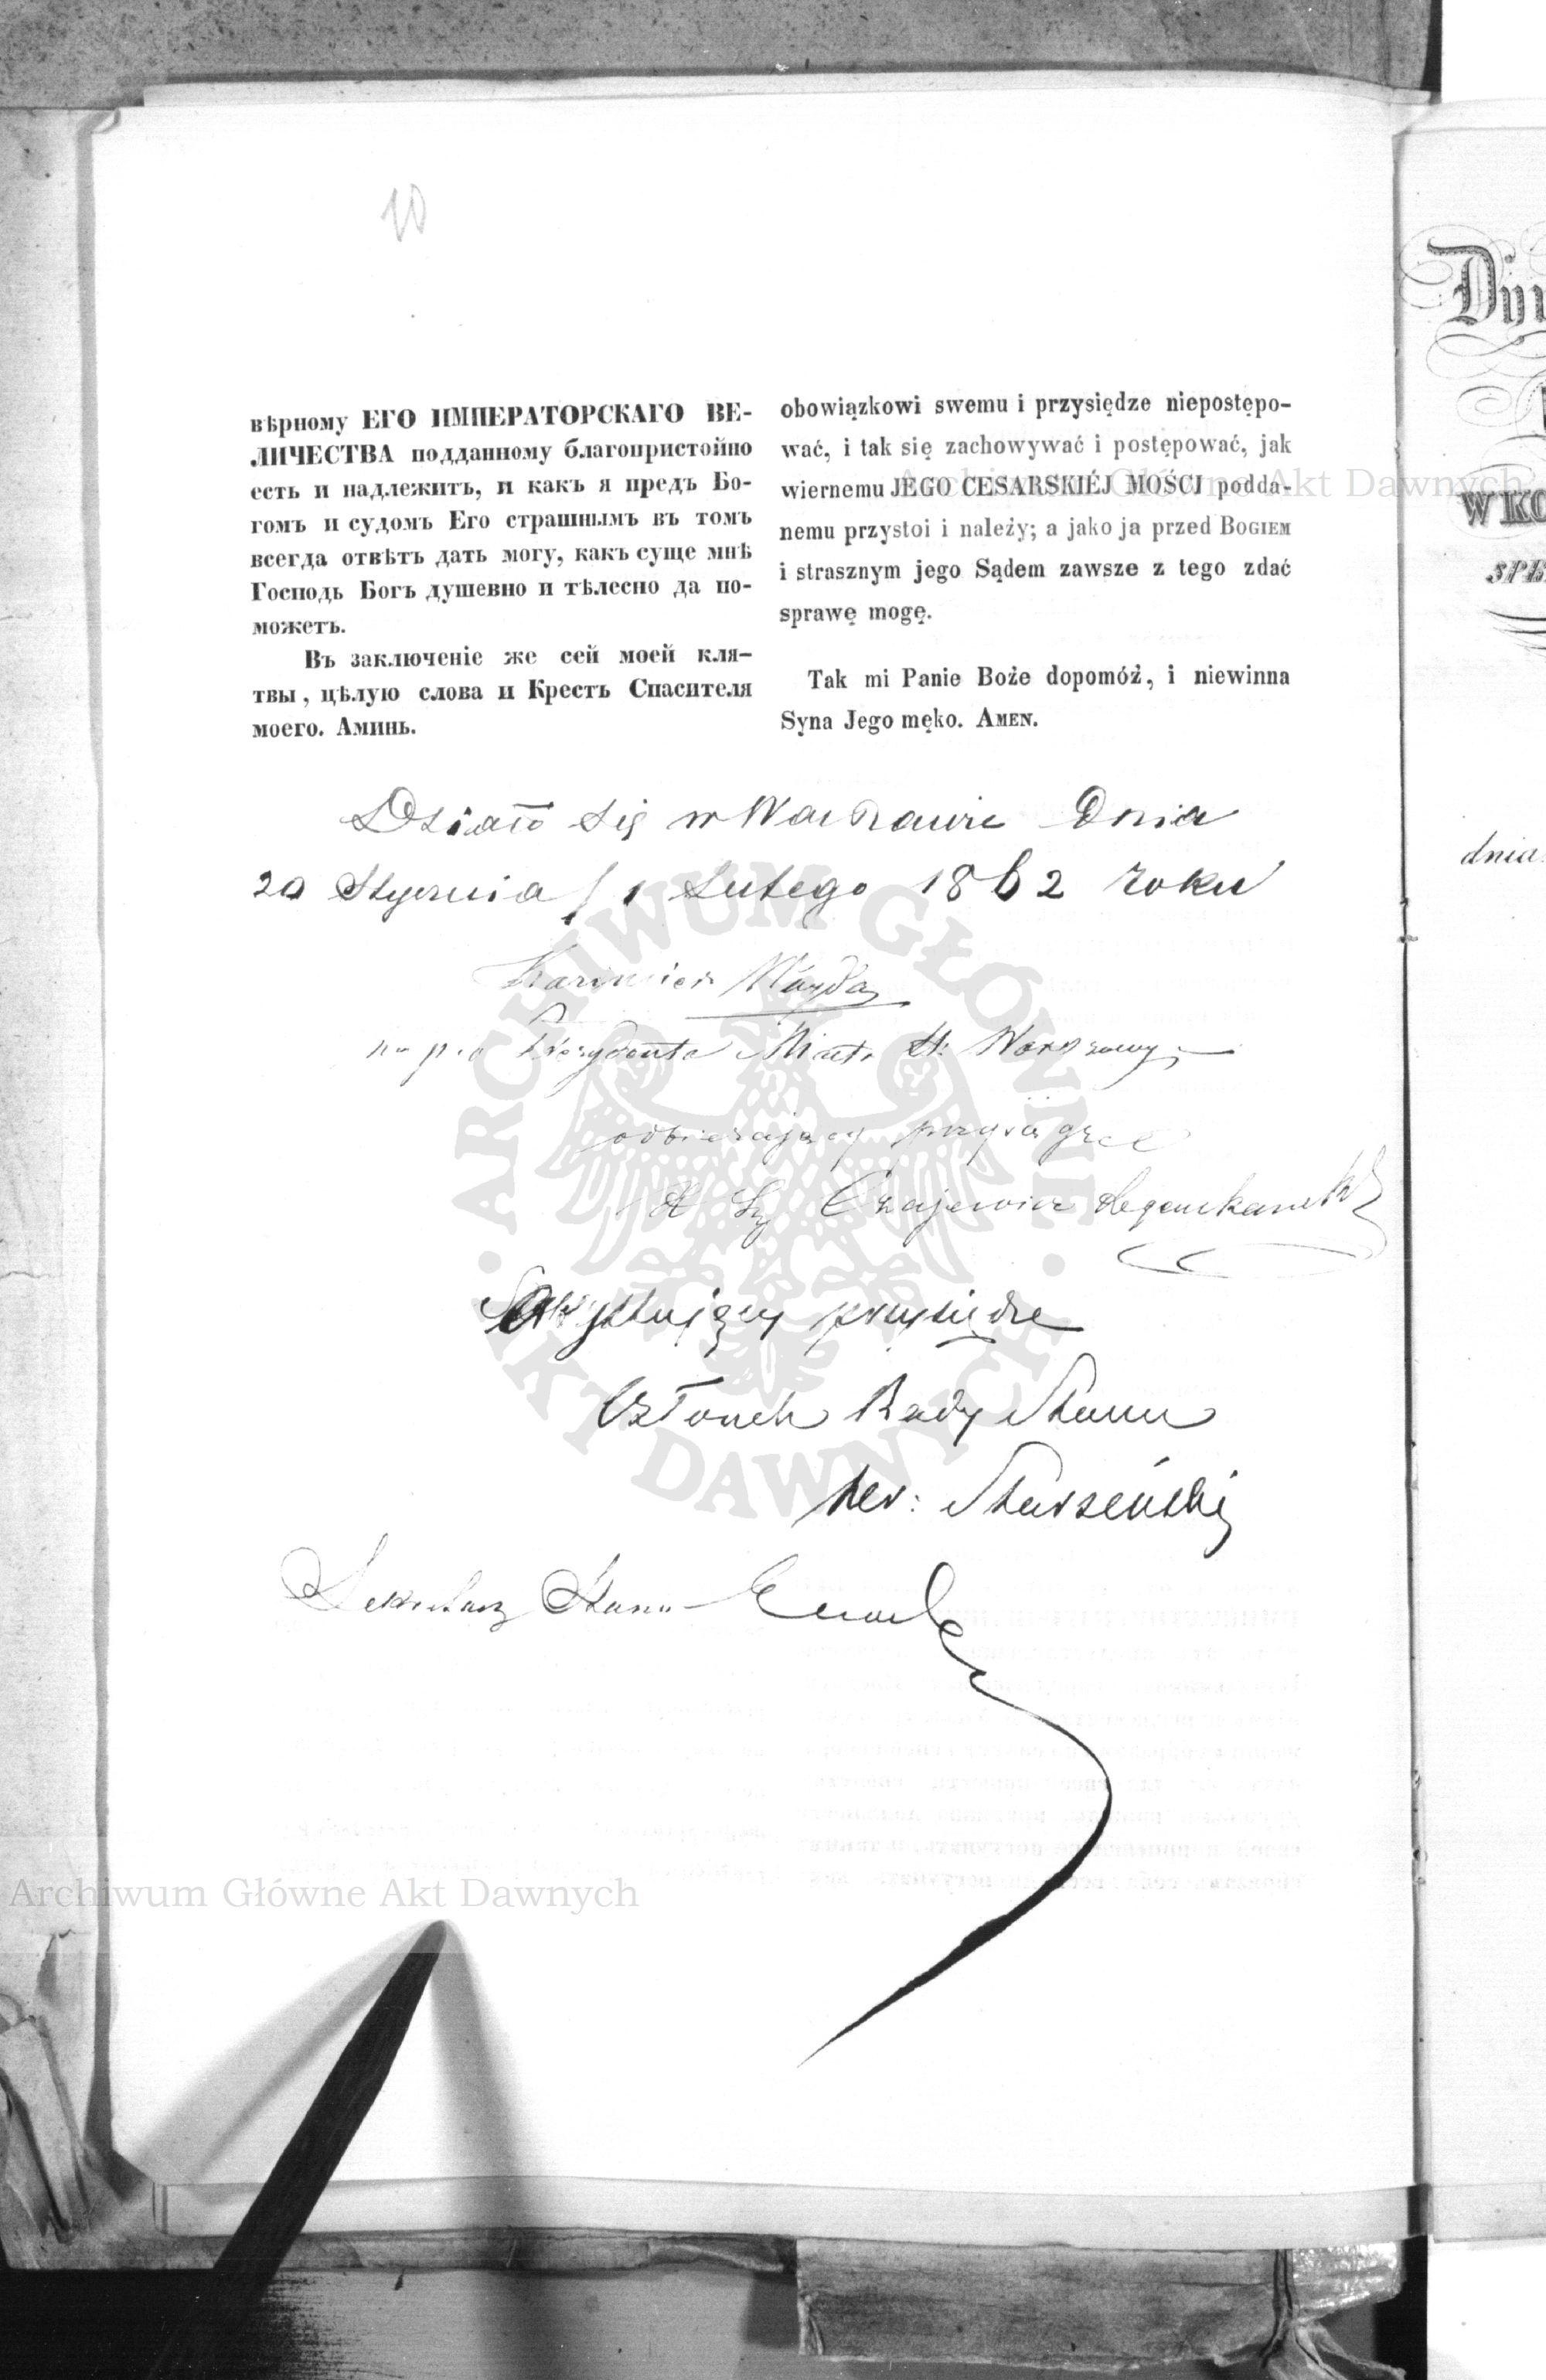 10
вѣрному ЕГО ИМПЕРАТОРСКАГО ВЕ-
ЛИЧЕСТВА подданному благопристойно
есть и надлежитъ, и какъ я предъ Бо-
гомъ и судомъ Его страшнымъ въ томъ
всегда отвѣтъ дать могу, какъ суще мнѣ
Господь Богъ душевно и тѣлесно да по-
можетъ.
Въ заключеніе же сей моей кля-
твы, цѣлую слова и Крестъ Спасителя
моего. Аминь.
obowiązkowi swemu i przysiędze niepostępo-
wać, i tak się zachowywać i postępować, jak
wiernemu JEGO CESARSKIÉJ MOŚCI podda-
nemu przystoi i należy; a jako ja przed BOGIEM
i strasznym jego Sądem zawsze z tego zdać
sprawę mogę.
Tak mi Panie Boże dopomóż, i niewinna
Syna Jego męko. AMEN.
Działo się w Warszawie Dnia
20 Stycznia / 1 Lutego 1862 roku
Kazimierz Woyda
na p.o Prezydenta Miasta St. Warszawy
odbierający przysięgę
X Czajewicz
przysiędze
Członek Rady Stanu
Starzeński
Sekretarz Stanu
ARCHIWUM GŁÓWNE
AKT DAWNYCH
Archiwum Główne Akt Dawnych
Archiwum Główne Akt Dawnych
Dy
W KO
SPE
dnia